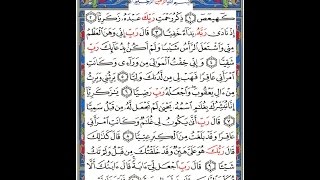 كٓهيعٓصٓ ١ ذِكْرُ رَحْمَتِ رَبِّكَ عَبْدَهُۥ زَكَرِيَّآ ٢
إِذْ نَادَىٰ رَبَّهُۥ نِدَآءً خَفِيًّا ٣ قَالَ رَبِّ إِنِّي وَهَنَ ٱلْعَظْمُ
مِنِّي وَٱشْتَعَلَ ٱلرَّأْسُ شَيْبًا وَلَمْ أَكُنۢ بِدُعَآئِكَ رَبِّ
شَقِيًّا ٤ وَإِنِّي خِفْتُ ٱلْمَوَٰلِيَ مِن وَرَآءِي وَكَانَتِ
ٱمْرَأَتِي عَاقِرًا فَهَبْ لِي مِن لَّدُنكَ وَلِيًّا ٥ يَرِثُنِي وَيَرِثُ
مِنْ ءَالِ يَعْقُوبَ وَٱجْعَلْهُ رَبِّ رَضِيًّا ٦ يَٰزَكَرِيَّآ
إِنَّا نُبَشِّرُكَ بِغُلَٰمٍ ٱسْمُهُۥ يَحْيَىٰ لَمْ نَجْعَل لَّهُۥ مِن قَبْلُ
سَمِيًّا ٧ قَالَ رَبِّ أَنَّىٰ يَكُونُ لِي غُلَٰمٌ وَكَانَتِ ٱمْرَأَتِي
عَاقِرًا وَقَدْ بَلَغْتُ مِنَ ٱلْكِبَرِ عِتِيًّا ٨ قَالَ كَذَٰلِكَ
قَالَ رَبُّكَ هُوَ عَلَيَّ هَيِّنٌ وَقَدْ خَلَقْتُكَ مِن قَبْلُ وَلَمْ تَكُ
شَيْـًٔا ٩ قَالَ رَبِّ ٱجْعَل لِّيٓ ءَايَةً قَالَ ءَايَتُكَ أَلَّا